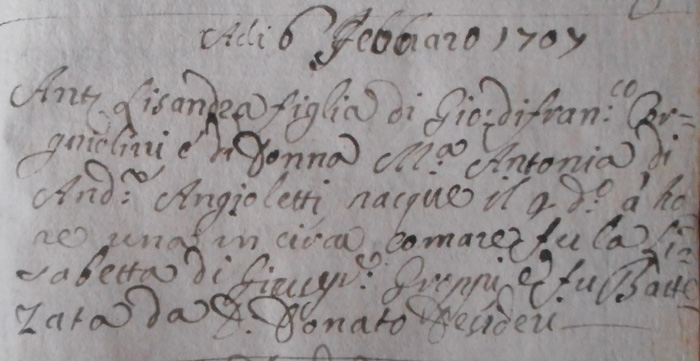 Adi 6 Febbraro 1707
Ant. Lisandra figlia di Gio: difran:co Br=
gniolini é di Donna M.a Antonia di
And:a Angioletti nacque il q d:o à ho
re una in circa comare fu la Li=
sabetta di Greppi e fu Batte
zata da D. Donato Desideri